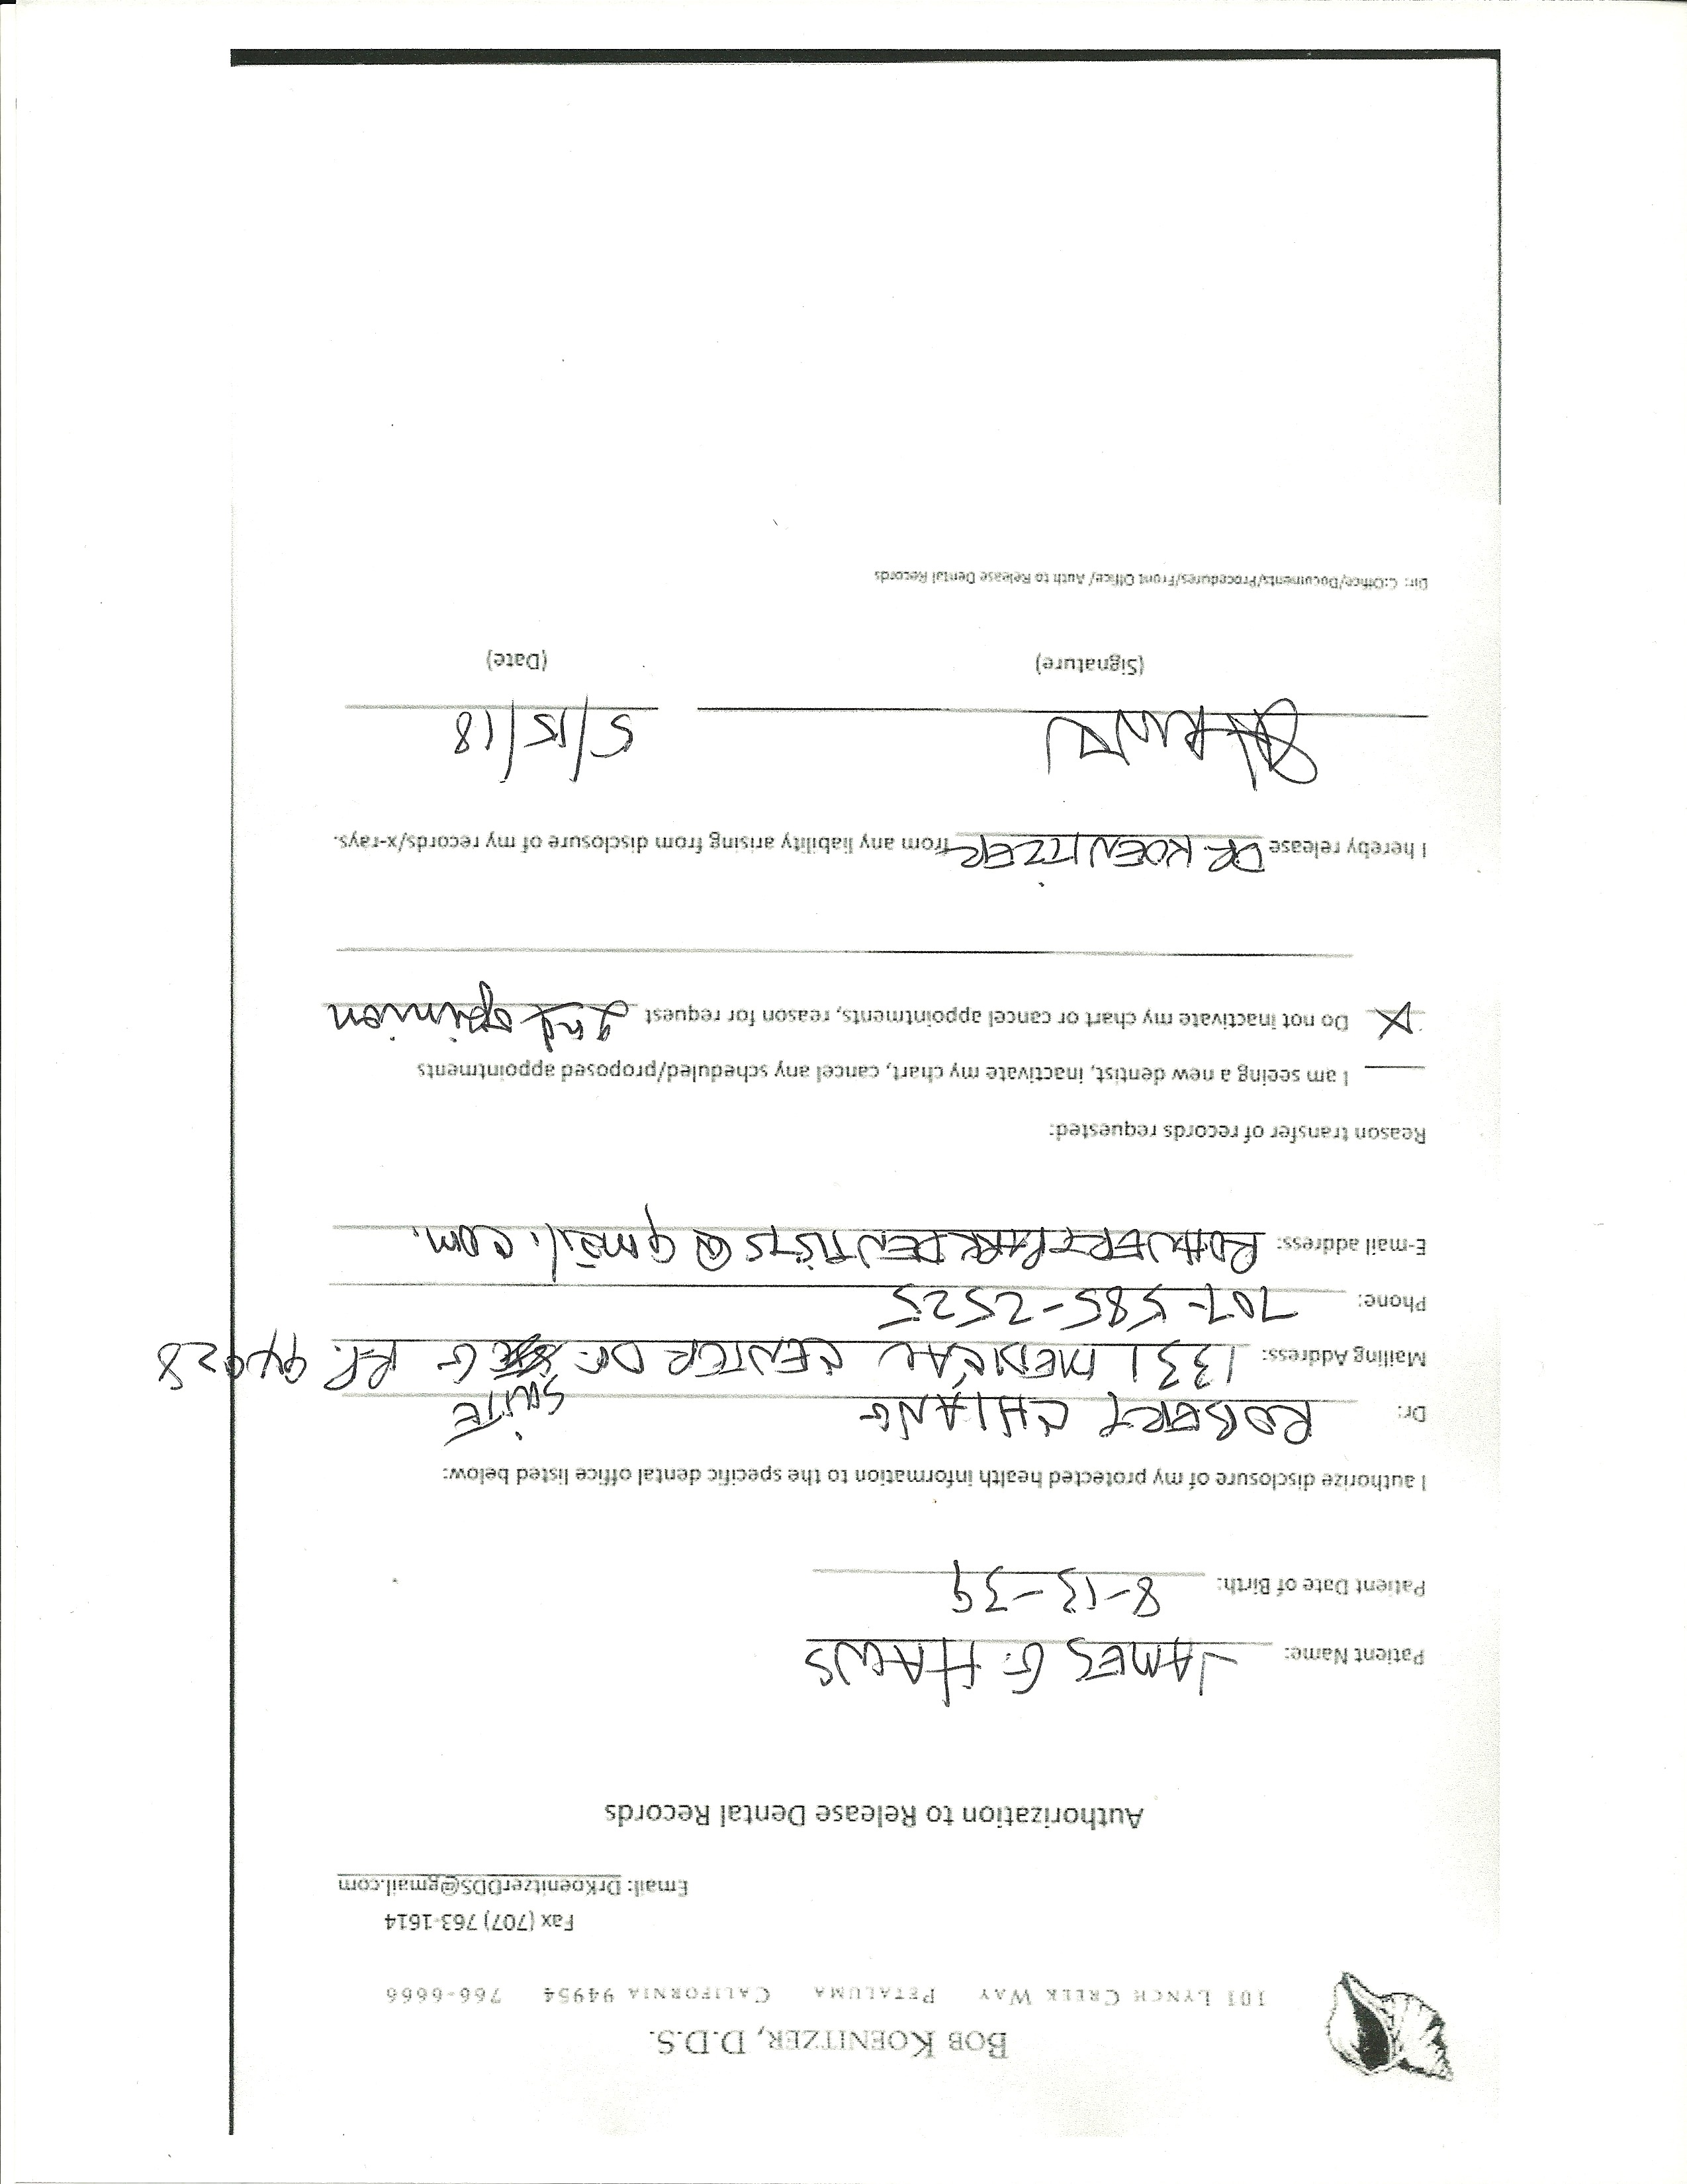 BOB KOENITZER, D.D.S.
101 LYNCH CREEK WAY PETALUMA CALIFORNIA 94954 766-6666
Fax (707) 763-1614
Email: DrKoenitzerDDS@gmail.com
Authorization to Release Dental Records
Patient Name: JAMES G. HAWS
Patient Date of Birth: 8-13-39
I authorize disclosure of my protected health information to the specific dental office listed below:
Dr: ROBERT CHIANG
SUITE
Mailing Address: 1331 MEDICAL CENTER DR. G R.P. 94928
Phone: 707-585-2525
E-mail address: ROHNERTPARKDENTISTS@gmail.com.
Reason transfer of records requested:
I am seeing a new dentist, inactivate my chart, cancel any scheduled/proposed appointments
X Do not inactivate my chart or cancel appointments, reason for request 2nd opinion
I hereby release DR KOENITZER from any liability arising from disclosure of my records/x-rays.
5/15/18
(Signature) (Date)
Dir: C:Office/Documents/Procedures/Front Office/ Auth to Release Dental Records